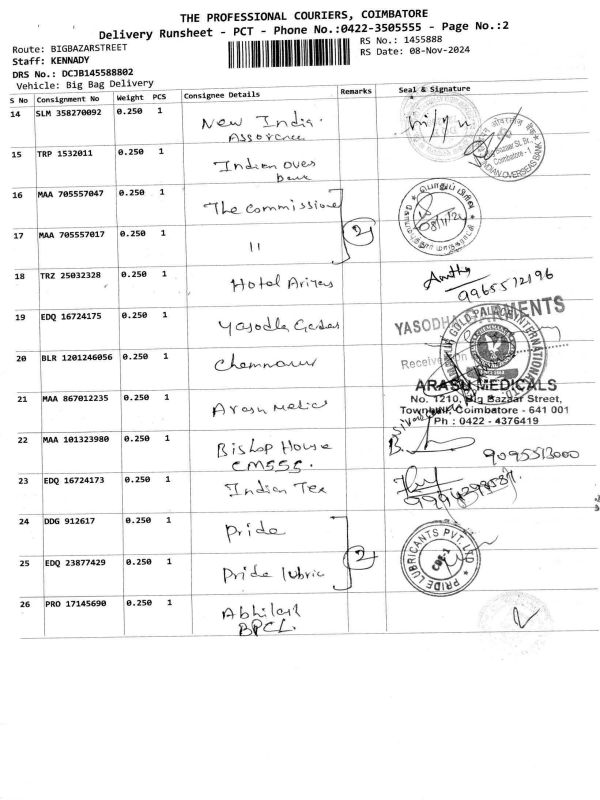 THE PROFESSIONAL COURIERS, COIMBATORE
Delivery Runsheet - PCT - Phone No.:0422-3505555 - Page No.:2
Route: BIGBAZARSTREET
RS No.: 1455888
Staff: KENNADY
RS Date: 08-Nov-2024
DRS No.: DCJB145588802
Vehicle: Big Bag Delivery
S No Consignment No Weight PCS Consignee Details Remarks Seal & Signature
14 SLM 358270092 0.250 1 New India
Assorence
15 TRP 1532011 0.250 1 Indian Overs
bank
Big Bazaar St. Br.
Coimbatore - 1
INDIAN OVERSEAS BANK
16 MAA 705557047 0.250 1 The commissione
2
08/11/24
17 MAA 705557017 0.250 1 11
18 TRZ 25032328 0.250 1 Hotel Ariyas
9965512196
19 EDQ 16724175 0.250 1
YASODHA GARMENTS
GOLD PALACE INTERNATIONAL
20 BLR 1201246056 0.250 1
Received
21 MAA 867012235 0.250 1 Arasu Medics
ARASU MEDICALS
No. 1210, Big Bazaar Street,
Townhall, Coimbatore - 641 001
Ph : 0422 - 4376419
22 MAA 101323980 0.250 1 Bishop House
CMSSS.
9095513000
23 EDQ 16724173 0.250 1 Indian Tex
24 DDG 912617 0.250 1 Pride
2
25 EDQ 23877429 0.250 1 Pride lubric
PRIDE LUBRICANTS PVT. LTD
CBE-1
26 PRO 17145690 0.250 1 Abhilash
BPCL